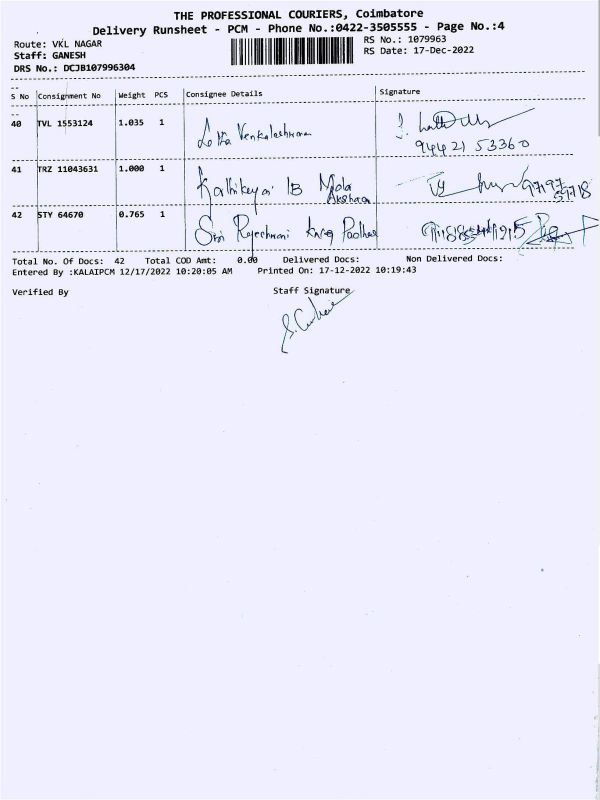 THE PROFESSIONAL COURIERS, Coimbatore
Delivery Runsheet - PCM - Phone No.:0422-3505555 - Page No.:4
Route: VKL NAGAR
RS No.: 1079963
Staff: GANESH
RS Date: 17-Dec-2022
DRS No.: DCJB107996304
S No Consignment No Weight PCS Consignee Details Signature
40 TVL 1553124 1.035 1 Venkaleshwara
94421 53360
41 TRZ 11043631 1.000 1 Karthikeyan
42 STY 64670 0.765 1 Sri
Total No. Of Docs: 42 Total COD Amt: 0.00 Delivered Docs: Non Delivered Docs:
Entered By :KALAIPCM 12/17/2022 10:20:05 AM Printed On: 17-12-2022 10:19:43
Verified By Staff Signature